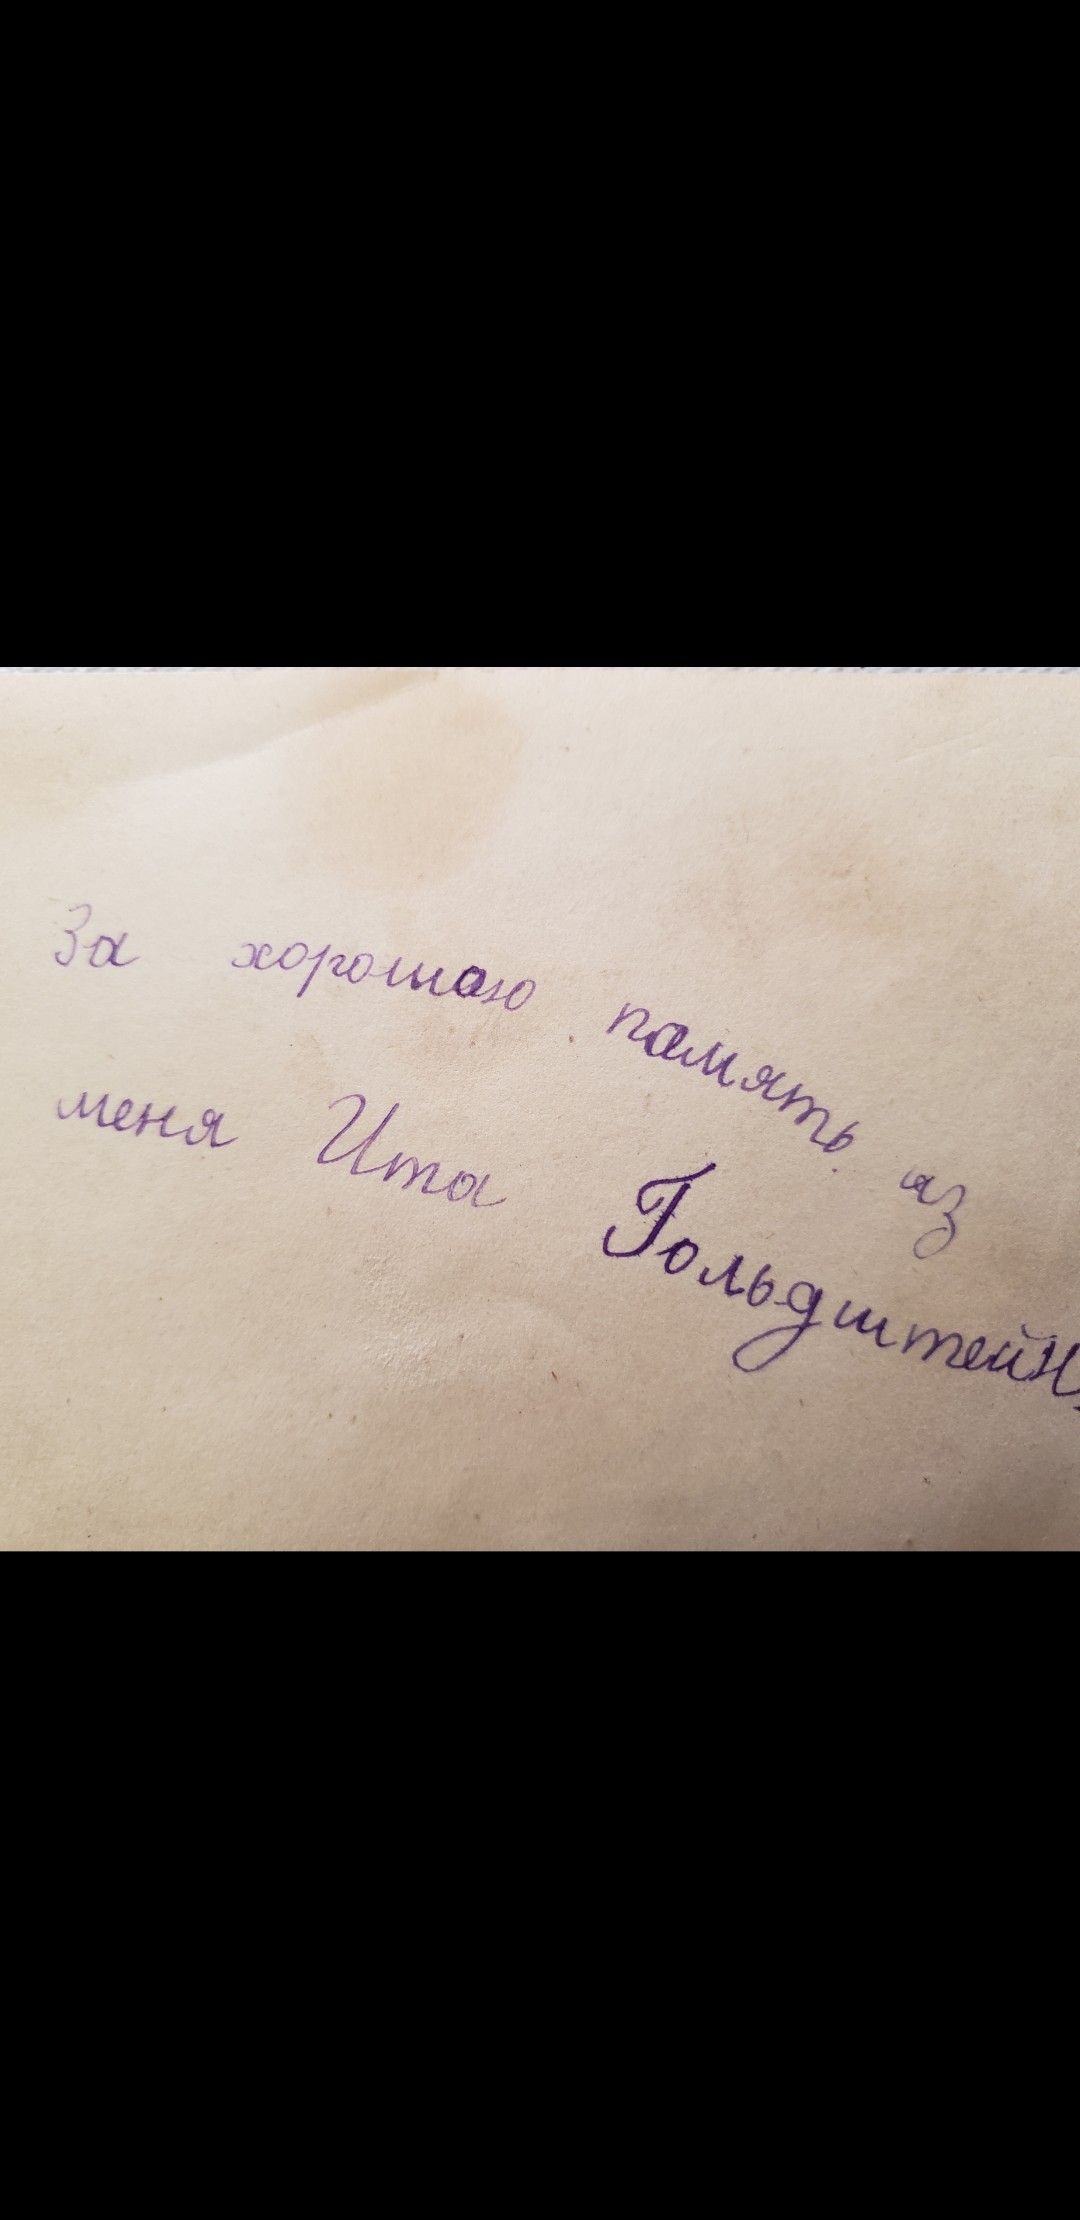 За хорошаю память из
меня Ита Гольдштейн